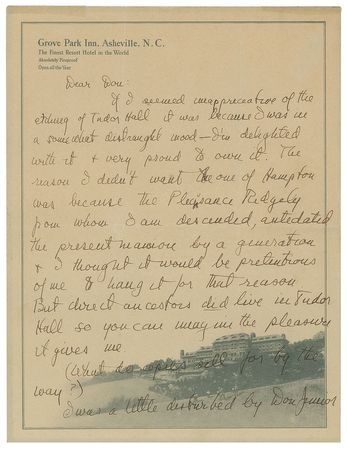 Grove Park Inn, Asheville, N. C.
The Finest Resort Hotel in the World
Absolutely Fireproof
Open all the Year
Dear Don:
If I seemed inappreciative of the
etching of Tudor Hall it was because I was in
a somewhat distraught mood — I'm delighted
with it & very proud to own it. The
reason I didn't want the one of Hampton
was because the Pleasance Ridgely
from whom I am descended, antedated
the present mansion by a generation
& I thought it would be pretentious
of me to hang it for that reason
But direct ancestors did live in Tudor
Hall so you can imagine the pleasure
it gives me.
(What do copies sell for by the
way?)
I was a little disturbed by Don Junior's